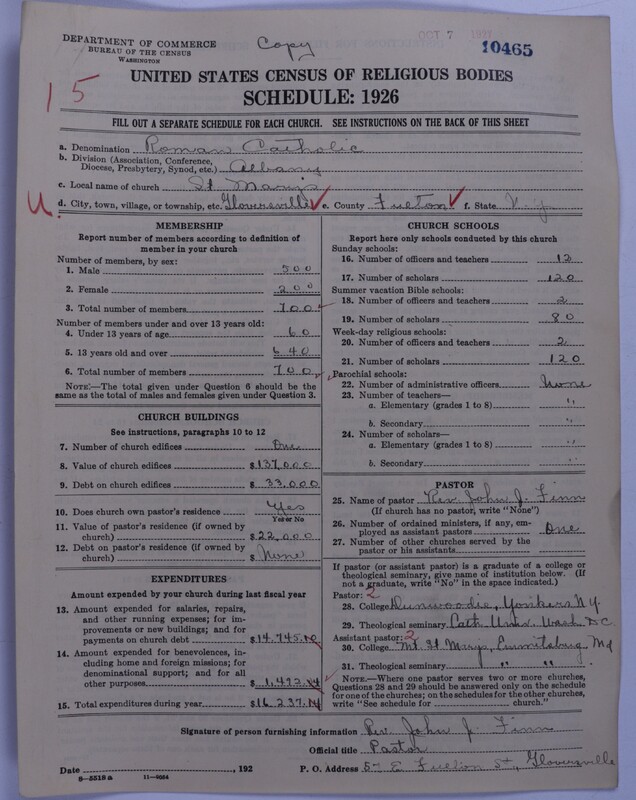 DEPARTMENT OF COMMERCE
BUREAU OF THE CENSUS
WASHINGTON
Copy
OCT 7
10465
15
UNITED STATES CENSUS OF RELIGIOUS BODIES
SCHEDULE: 1926
FILL OUT A SEPARATE SCHEDULE FOR EACH CHURCH. SEE INSTRUCTIONS ON THE BACK OF THIS SHEET
a. Denomination Roman Catholic
b. Division (Association, Conference, Diocese, Presbytery, Synod, etc.) Albany
c. Local name of church St Marys
U. d. City, town, village, or township, etc. Gloversville e. County Fulton f. State N.Y.
MEMBERSHIP
Report number of members according to definition of
member in your church
Number of members, by sex:
1. Male 500
2. Female 200
3. Total number of members 700
Number of members under and over 13 years old:
4. Under 13 years of age 60
5. 13 years old and over 640
6. Total number of members 700
NOTE.—The total given under Question 6 should be
same as the total of males and females given under Question 3.
CHURCH BUILDINGS
See instructions, paragraphs 10 to 12
7. Number of church edifices One
8. Value of church edifices $137,000
9. Debt on church edifices $33,000
10. Does church own pastor's residence? Yes
Yes or No
11. Value of pastor's residence (if owned by
church) $22,000
12. Debt on pastor's residence (if owned by
church) $None
EXPENDITURES
Amount expended by your church during last fiscal year
13. Amount expended for salaries, repairs,
and other running expenses; for im-
provements or new buildings; and for
payments on church debt $14,745.
14. Amount expended for benevolences,
including home and foreign missions; for
denominational support; and for all
other purposes $1,492.
15. Total expenditures during year $16,237.
CHURCH SCHOOLS
Report here only schools conducted by this church
Sunday schools:
16. Number of officers and teachers 12
17. Number of scholars 120
Summer vacation Bible schools:
18. Number of officers and teachers 2
19. Number of scholars 80
Week-day religious schools:
20. Number of officers and teachers 2
21. Number of scholars 120
Parochial schools:
22. Number of administrative officers None
23. Number of teachers—
a. Elementary (grades 1 to 8) "
b. Secondary "
24. Number of scholars—
a. Elementary (grades 1 to 8) "
b. Secondary "
PASTOR
25. Name of pastor Rev. John J. Finn
(If church has no pastor, write "None")
26. Number of ordained ministers, if any, em-
ployed as assistant pastors One
27. Number of other churches served by the
pastor or his assistants
If pastor (or assistant pastor) is a graduate of a college or
theological seminary, give name of institution below. (If
not a graduate, write "No" in the space indicated.)
Pastor: 2
28. College Dunwoodie, Yonkers N.Y.
29. Theological seminary Cath. Univ. Wash. D.C.
Assistant pastor: 2
30. College Mt St Marys, Emmitsburg, Md
31. Theological seminary " " "
NOTE.—Where one pastor serves two or more churches,
Questions 28 and 29 should be answered only on the schedule
for one of the churches; on the schedules for the other churches,
write "See schedule for church."
Signature of person furnishing information Rev. John J. Finn
Official title Pastor
Date , 192 P. O. Address 57 E Fulton St, Gloversville
8—5518 a 11—9064